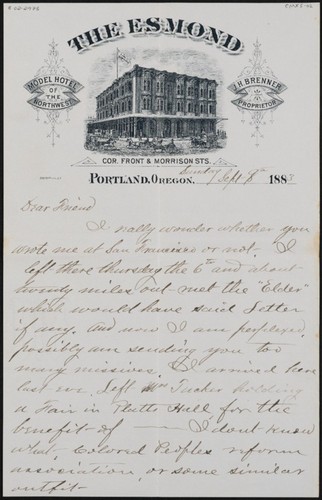 THE ESMOND
MODEL HOTEL
OF THE
NORTHWEST
J.H. BRENNER
PROPRIETOR
COR. FRONT & MORRISON STS.
PORTLAND, OREGON, Sunday Sept 8th 188
Dear Friend
I really wonder whether you
wrote me at San Francisco or not. I
left there Thursday the 6th and about
twenty miles out met the "Elder"
which would have said letter
if any. And now I am perplexed,
possibly am sending you too
many missives. I arrived here
last eve. Left Mrs Tucker holding
a Fair in Platts Hall for the
benefit of — I dont know
what, Colored Peoples reform
association, or some similar
outfit